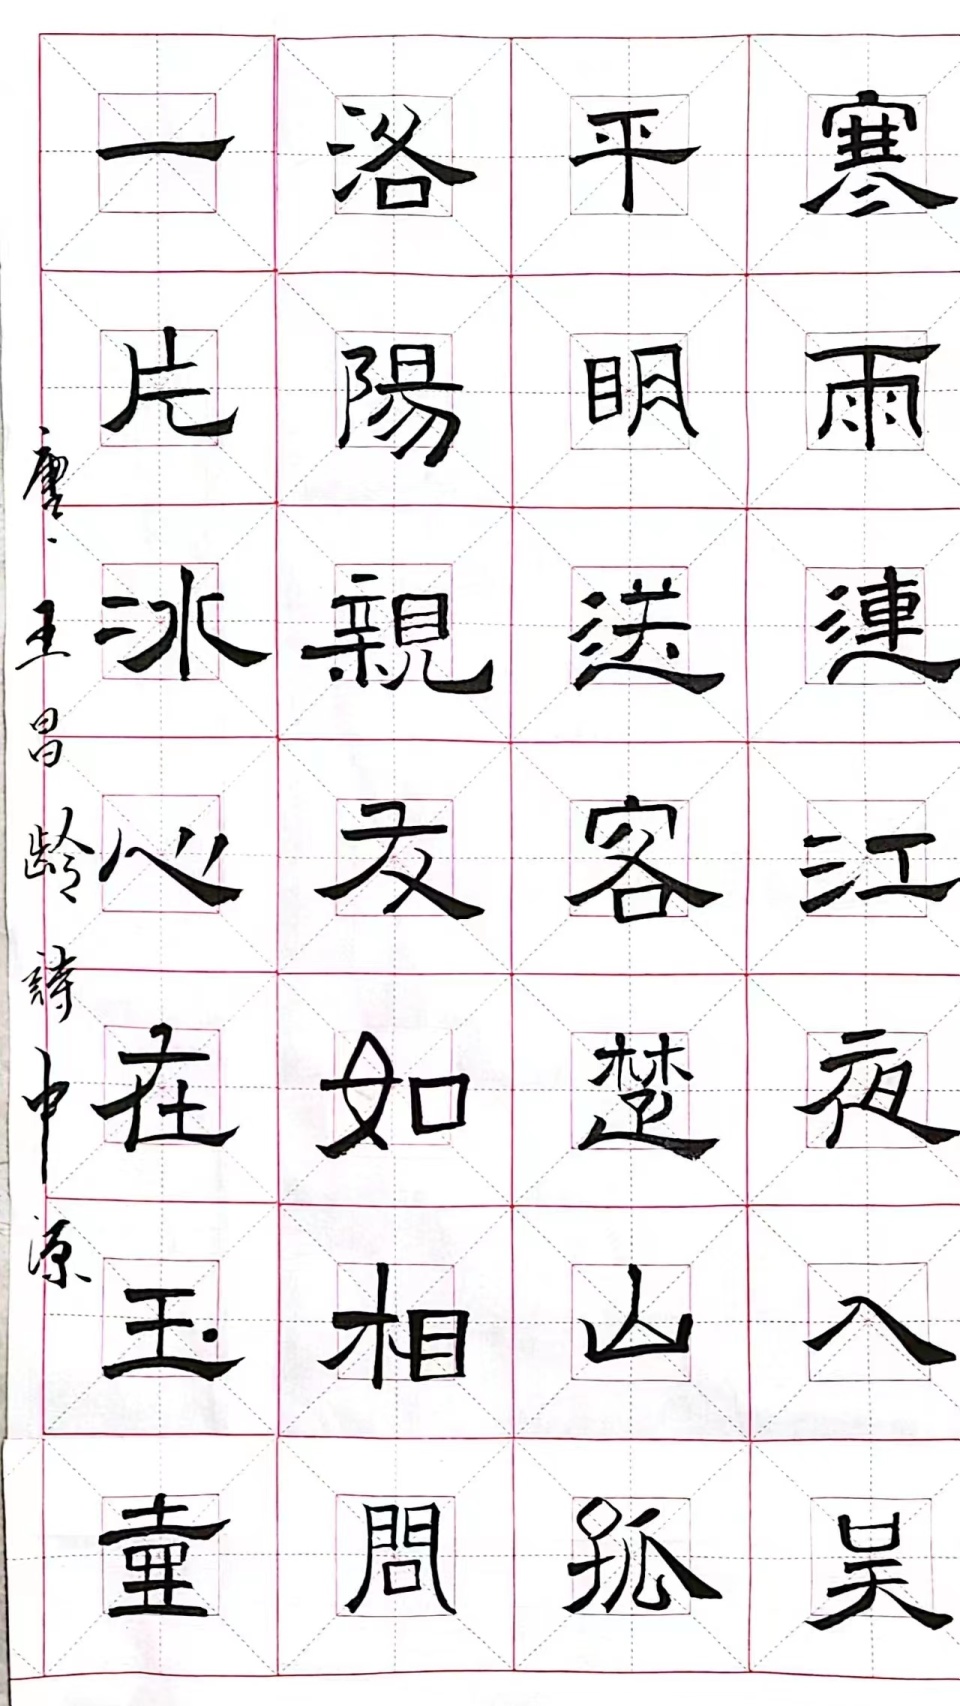 寒雨連江夜入吴
平明送客楚山孤
洛陽親友如相問
一片冰心在玉壷
唐、王昌齡詩中源